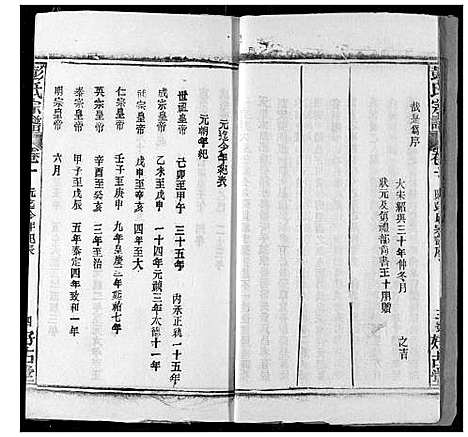 彭氏宗譜
卷一
截是爲序
大宋紹興三十年仲冬月
之吉
狀元及第禮部尚書王十朋贈
元迄今年紀表
元朝年紀
世祖皇帝 己卯至甲午 三十五年 內承正統一十五年
成宗皇帝 乙未至戊申 一十四年元貞三年太德十一年
武宗皇帝 戊申至辛亥 四年至大
仁宗皇帝 壬子至庚申 九年皇慶二年延祐七年
英宗皇帝 辛酉至癸亥 三年至治
泰宗皇帝 甲子至戊辰 五年泰定四年致和一年
明宗皇帝 六月
彭氏宗譜
卷一
元迄今年紀表
四
好古堂